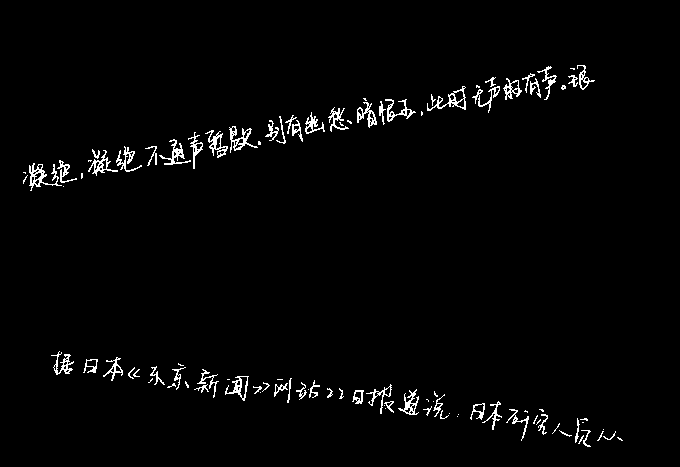 凝绝，凝绝不通声暂歇。别有幽愁暗恨生，此时无声胜有声。银
据日本《东京新闻》网站22日报道说，日本研究人员从